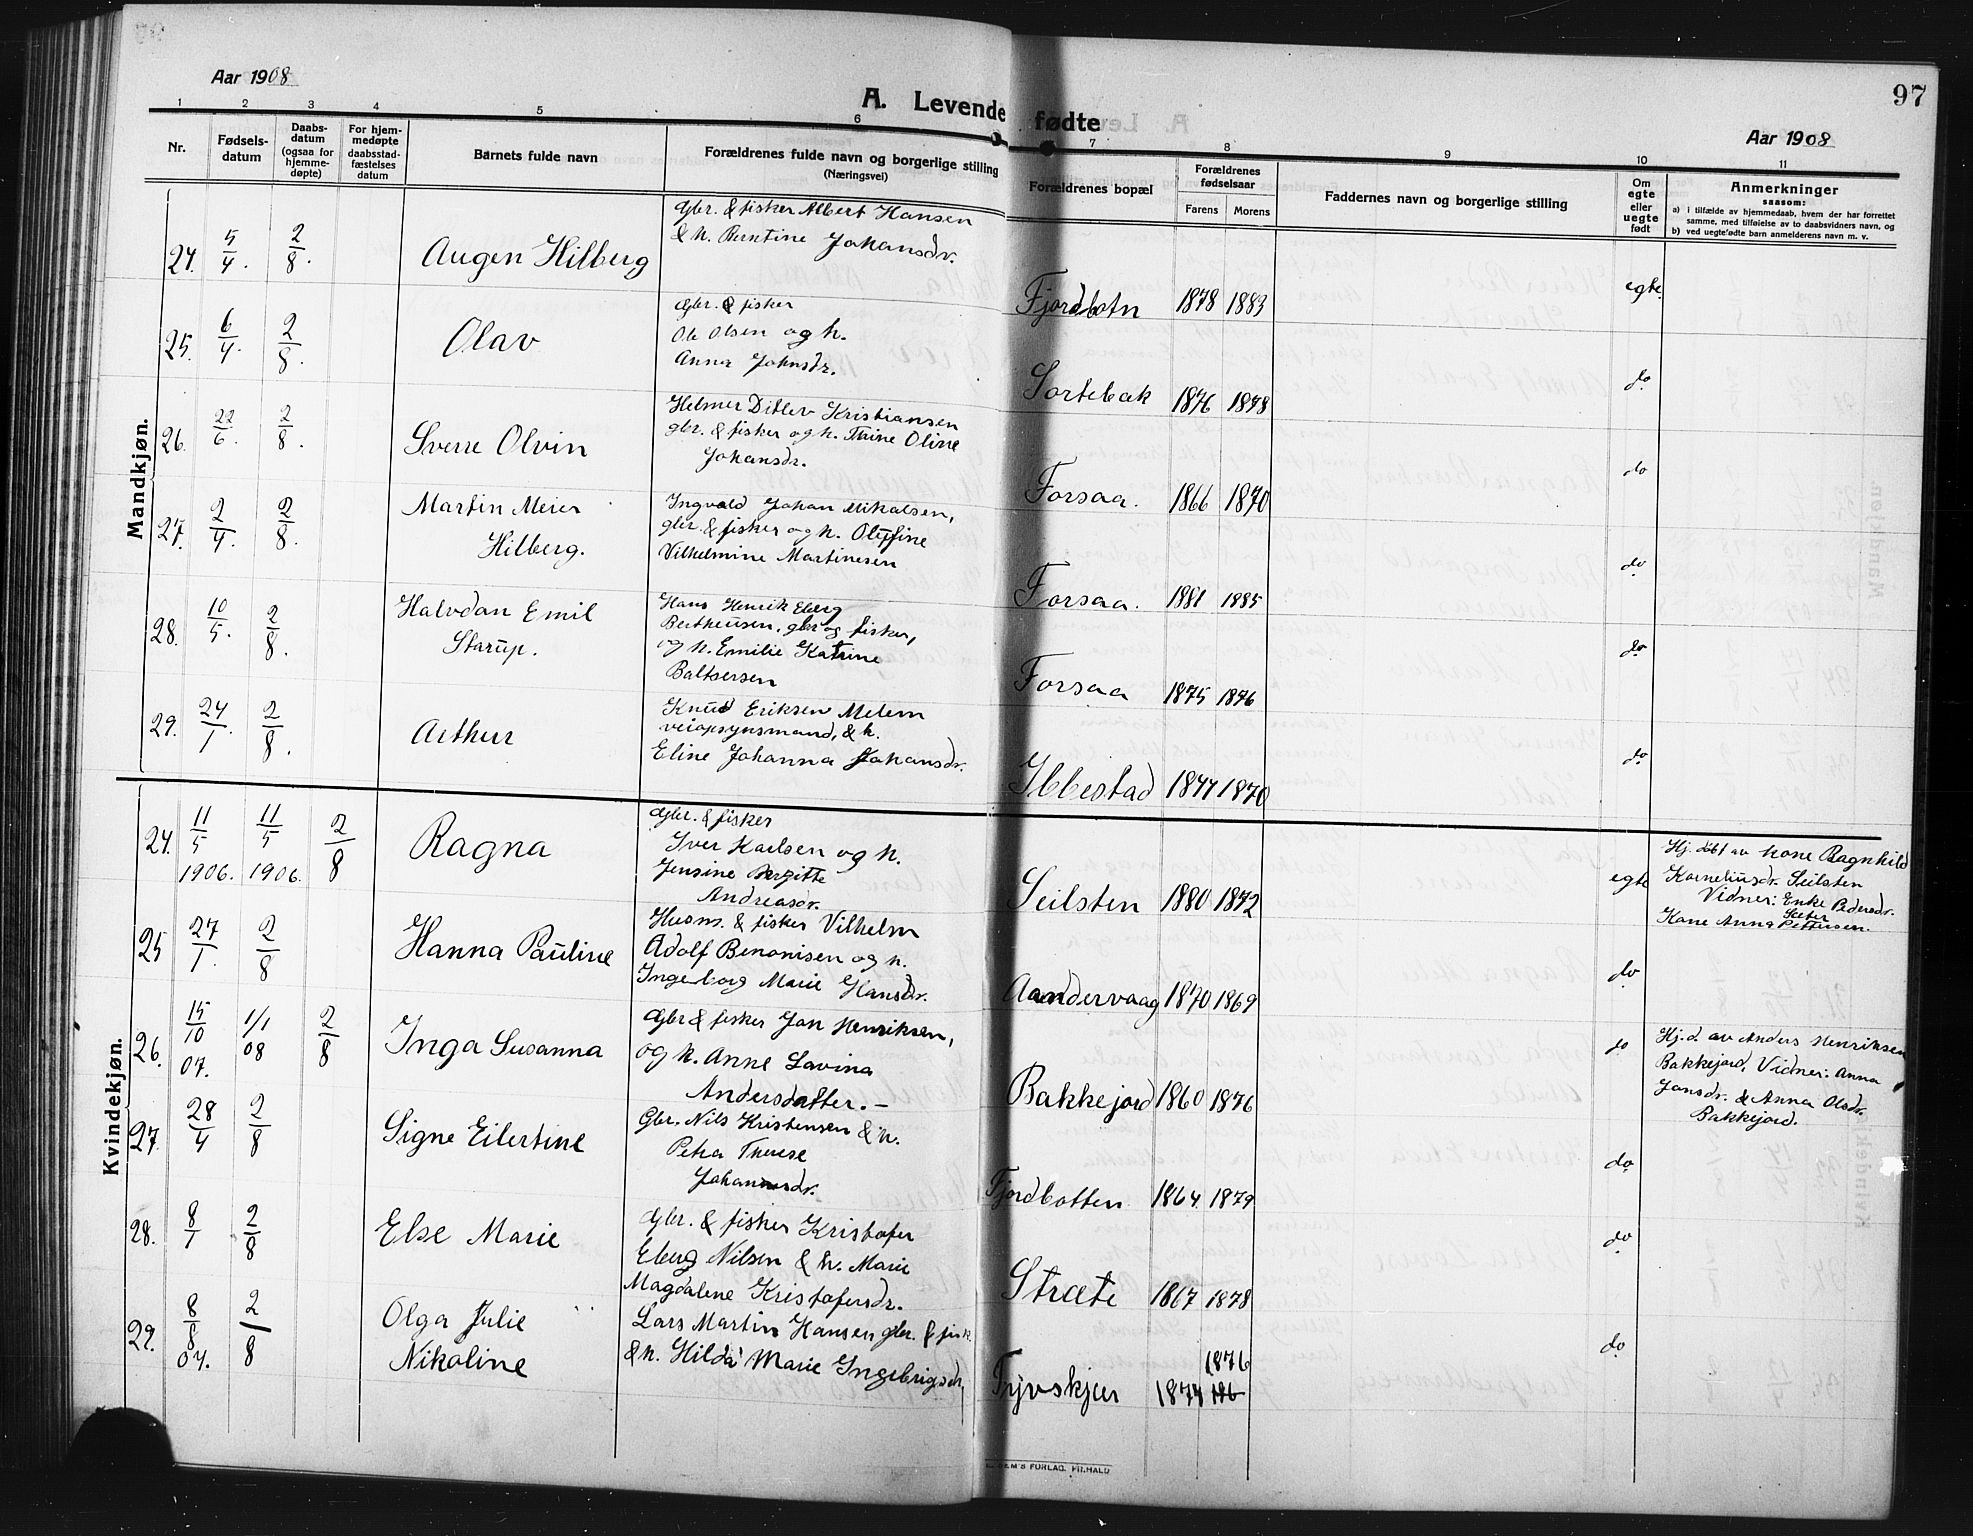 Aar 1908
A. Levende fødte
97
Aar 1908
1 2 3 4 5 6 7 8 9 10 11
Nr.
Fødsels-
datum
Daabs-
datum
(ogsaa for
hjemme-
døpte)
For hjem-
medøpte
daabsstad-
fæstelses
datum
Barnets fulde navn
Forældrenes fulde navn og borgerlige stilling
(Næringsvei)
Forældrenes bopæl
Forældrenes
fødselsaar
Farens Morens
Faddernes navn og borgerlige stilling
Om
egte
eller
uegte
født
Anmerkninger
saasom:
a) i tilfælde av hjemmedaab, hvem der har forrettet
samme, med tilføielse av to daabsvidners navn, og
b) ved uegtefødte barn anmelderens navn m. v.
Mandkjøn.
24. 5/4. 2/8. Augen Hilberg
Gbr. & fisker Albert Hansen
& h. Berntine Johansdr.
Fjordbotn 1878 1883 egte.
25. 6/4. 2/8. Olav
Gbr. & fisker
Ole Olsen og h.
Anna Johnsdr.
Sortebak 1876 1878 do
26. 22/6. 2/8. Sverre Olvin
Helmer Ditlev Kristiansen
gbr. & fisker og h. Trine Oline
Johansdr.
Forsaa. 1866 1870 do
27. 2/4. 2/8. Martin Meier
Hilberg.
Ingvald Johan Mikalsen,
gbr. & fisker og h. Oluffine
Vilhelmine Martinesen
Forsaa. 1881 1885 do
28. 10/5. 2/8. Halvdan Emil
Starup.
Hans Henrik Eberg
Bertheusen, gbr og fisker,
og h. Emilie Katrine
Baltsersen
Forsaa 1875 1876 do
29. 24/1. 2/8. Arthur
Knud Eriksen Melem
veiopsynsmand, & h.
Eline Johanna Johansdr.
Ibbestad 1877 1870 do
Kvindekjøn.
24. 11/5 1906. 11/5 1906. 2/8 Ragna
Gbr. & fisker
Iver Karlsen og h.
Jensine Bergitte
Andreasdr.
Seilsten 1880 1872 egte
Hj. døbt av kone Ragnhild
Korneliusdr. Seilsten
Vidner: Enke Pedersdr.
Sæter
Kone Anna Pettersen.
25 27/1. 2/8 Hanna Pauline
Husm. & fisker Vilhelm
Adolf Benonisen og h.
Ingeborg Marie Hansdr.
Aandervaag 1870 1869 do
26. 15/10 07. 1/1 08 2/8 Inga Susanna
Gbr & fisker Jan Henriksen,
og h. Anne Lavina
Andersdatter. –
Bakkejord 1860 1876 do
Hj. d. av Anders Henriksen
Bakkejord, Vidner: Anna
Jansdr. & Anna Olsdr.
Bakkejord.
27. 28/4 2/8 Signe Eilertine
Gbr. Nils Kristensen & h.
Petra Therese
Johannesdr.
Fjordbotten 1864 1879 do
28. 8/1 2/8 Else Marie
Gbr. & fisker Kristofer
Eberg Nilsen & h. Marie
Magdalene Kristofersdr.
Stræte 1867 1878 do
29. 8/8 07. 2/8 Olga Julie
Nikoline
Lars Martin Hansen gbr. & fisk.
& h. Hilda Marie Ingebrigsdr.
1876
Tyvskjær 1874 do
FORLAG. FR.HALD